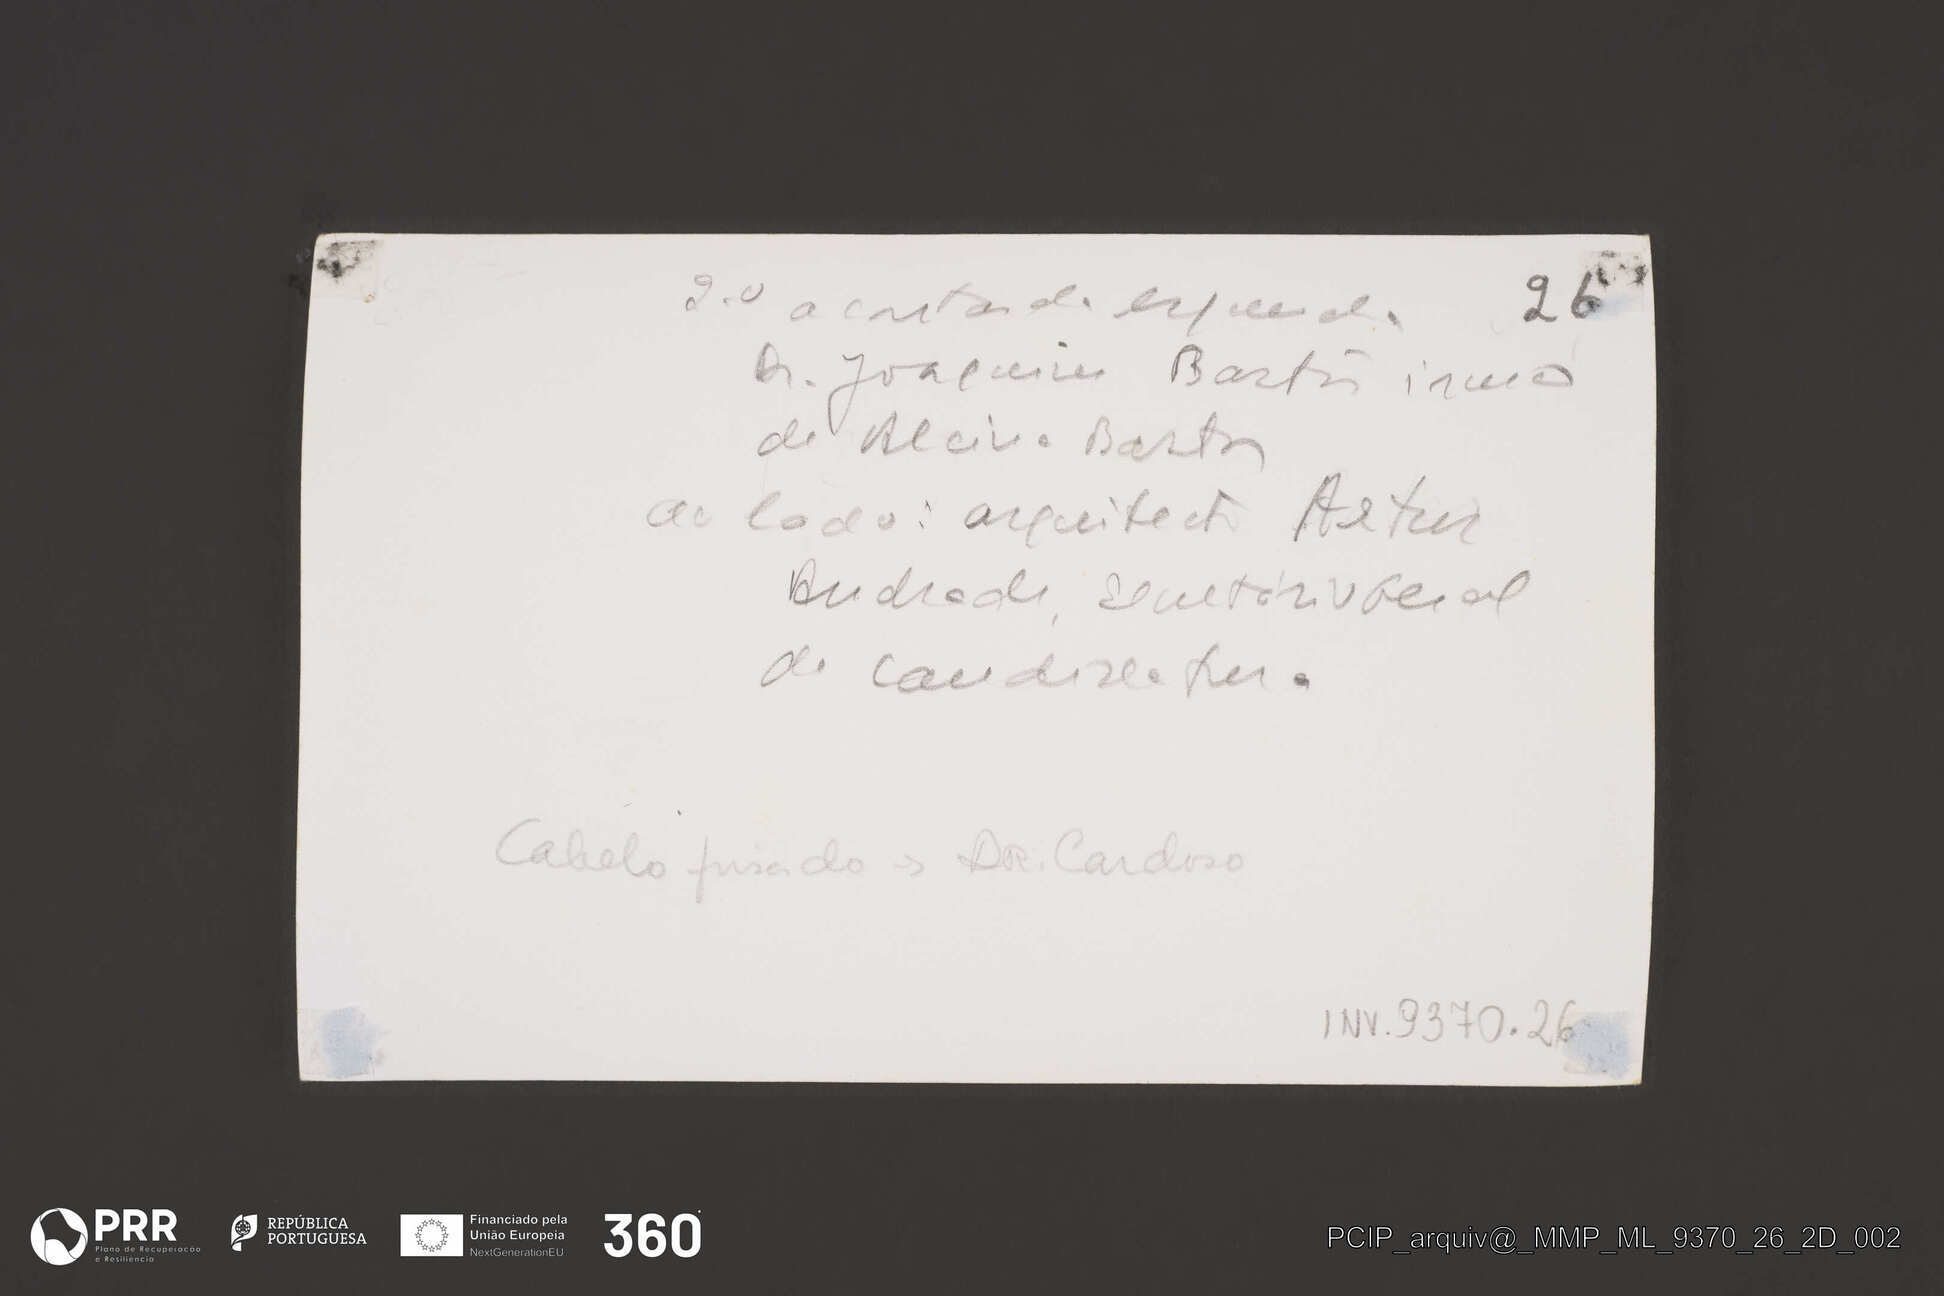 2.º a contar da esquerda
26
Dr. Joaquim Bastos irmão
de Alcina Bastos
ao lado: arquitecto Artur
Andrade, secretário Geral
da candidatura
Cabelo frisado → DR. Cardoso
INV. 9370.26
PRR
Plano de Recuperação
e Resiliência
REPÚBLICA
PORTUGUESA
Financiado pela
União Europeia
NextGenerationEU
360
PCIP_arquiv@_MMP_ML_9370_26_2D_002